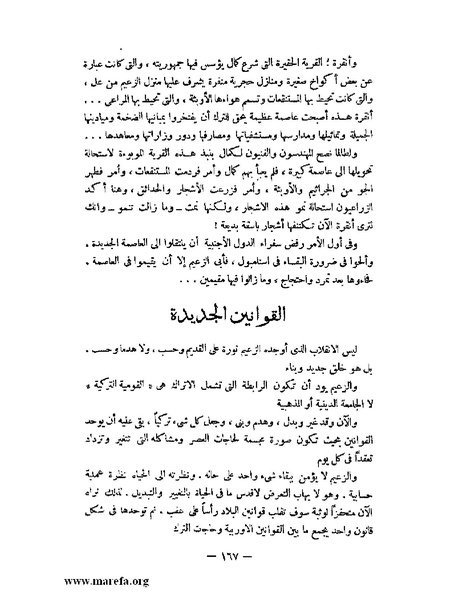 وأنقرة ! القرية الحقيرة التى شرع كمال يؤسس فيها جمهوريته ، والتى كانت عبارة
عن بعض أكواخ صغيرة ومنازل حجرية منفرة يشرف عليها منزل الزعيم من عل ،
والتى كانت تحيط بها المستنقعات وتسمم هواءها الأوبئة ، والتى تحيط بها المراعى . . .
أنقرة هذه أصبحت عاصمة عظيمة يحق للترك أن يفتخروا بمبانيها الضخمة وميادينها
الجميلة وتماثيلها ومدارسها ومستشفياتها ومصارفها ودور وزاراتها ومعاهدها . . .
ولطالما نصح المهندسون والفنيون لكمال بنبذ هذه القرية الموبوءة لاستحالة
تحويلها الى عاصمة كبيرة ، فلم يعبأ بهم كمال وأمر فردمت المستنقعات ، وأمر فطهر
الجو من الجراثيم والأوبئة ، وأمر فزرعت الأشجار والحدائق ، وهنا أكد
الزراعيون استحالة نمو هذه الاشجار ، ولكنها نمت ــ وما زالت تنمو ــ وانك
لترى أنقرة الآن تكتنفها أشجار باسقة بديعة !
وفى أول الأمر رفض سفراء الدول الأجنبية أن ينتقلوا الى العاصمة الجديدة .
وألحوا فى ضرورة البقاء فى استامبول ، فأبى الزعيم إلا أن يقيموا فى العاصمة .
فجاءوها بعد تمرد واحتجاج ، وما زالوا فيها مقيمين . . .
القوانين الجديدة
ليس الانقلاب الذى أوجده الزعيم ثورة على القديم وحسب ، ولا هدما وحسب .
بل هو خلق جديد وبناء
والزعيم يود أن تكون الرابطة التى تشمل الاتراك هى « القومية التركية »
لا الجامعة الدينية أو المذهبية
والآن وقد غير وبدل ، وهدم وبنى ، وجعل كل شىء تركياً ، بقى عليه أن يوحد
القوانين بحيث تكون صورة مجسمة لحاجات العصر ومشاكله التى تتغير وتزداد
تعقداً فى كل يوم
والزعيم لا يؤمن ببقاء شىء واحد على حاله . ونظرته الى الحياة نظرة عملية
حسابية . وهو لا يهاب التعرض لاقدس ما فى الحياة بالتغيير والتبديل . لذلك تراه
الآن متحفزاً لوثبة سوف تقلب قوانين البلاد رأساً على عقب . ثم توحدها فى شكل
قانون واحد يجمع ما بين القوانين الاوربية وحاجات الترك
— ١٦٧ —
www.marefa.org